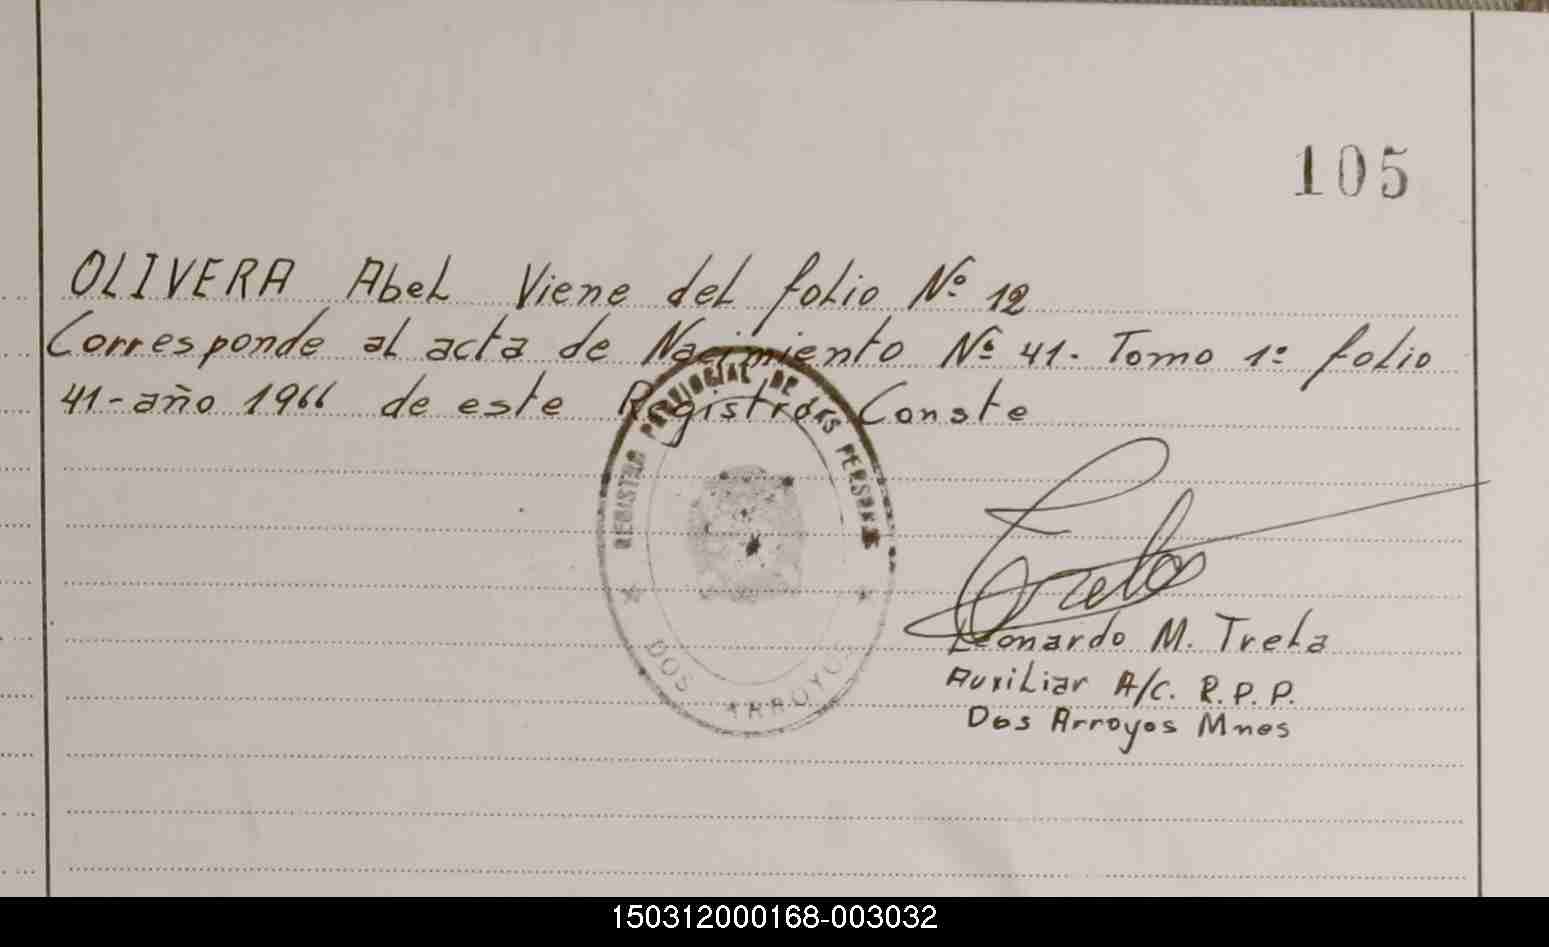 105
OLIVERA Abel Viene del folio Nº 12
Corresponde al acta de Nacimiento Nº 41. Tomo 1º folio
41-año 1966 de este Registro. Conste
REGISTRO PROVINCIAL DE LAS PERSONAS
DOS ARROYOS
Leonardo M. Treta
Auxiliar A/C. R.P.P.
Dos Arroyos Mnes
150312000168-003032